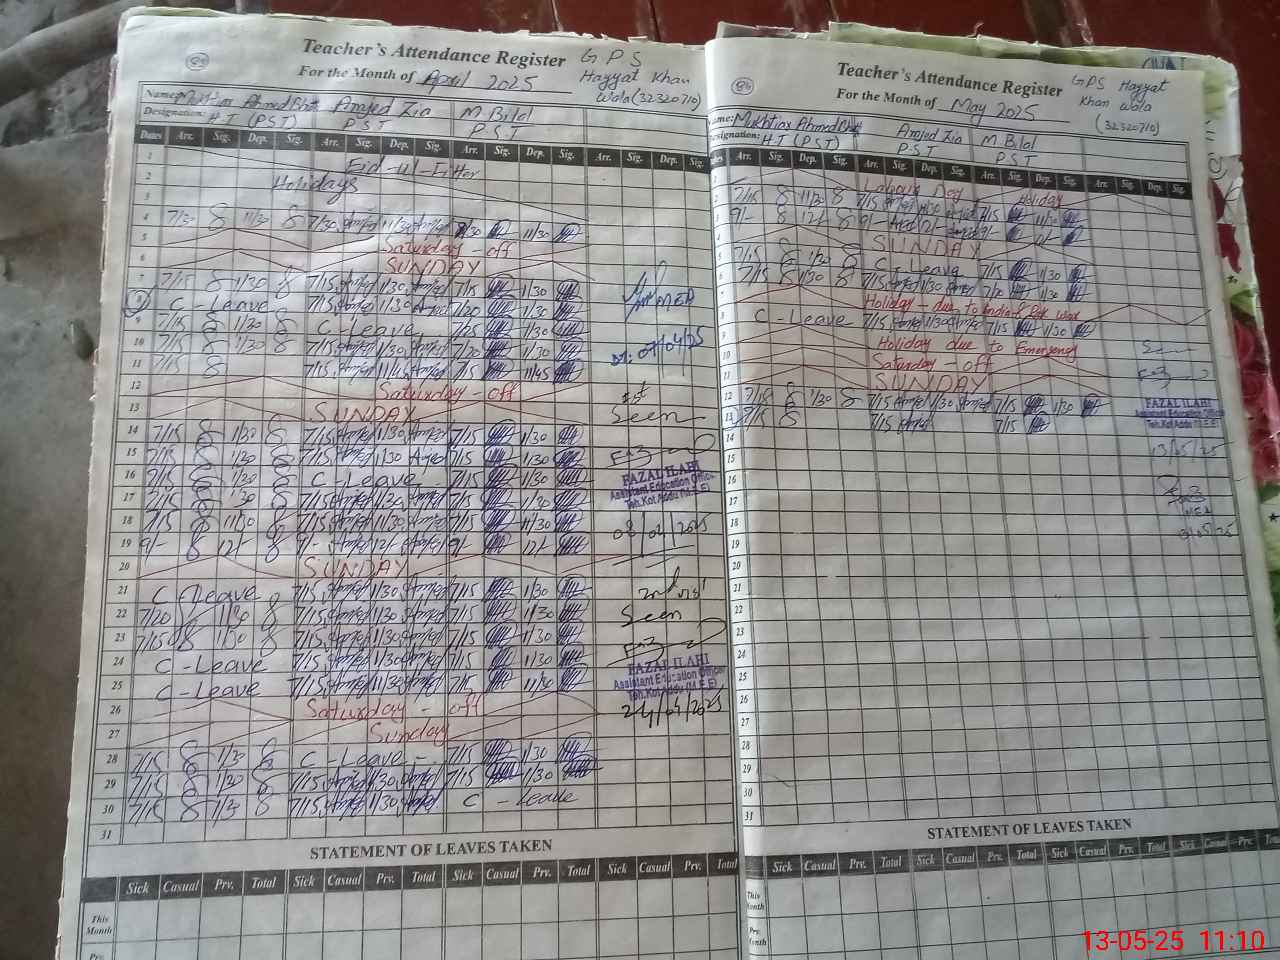 84
Teacher's Attendance Register GPS
For the Month of April 2025 Hayyat Khan
Wala (32320710)
Name: Mukhtiar Ahmed Bhat Amjed Zia M.Bilal
Designation: H.T (PST) P.S.T P.S.T
Dates Arr. Sig. Dep. Sig. Arr. Sig. Dep. Sig. Arr. Sig. Dep. Sig. Arr. Sig. Dep. Sig.
1 Eid-ul-Fitter
2 Holidays
3
4 7/30 11/30 7/30 Amjed 11/30 Amjed 7/30 11/30
5 Saturday off
6 SUNDAY
7 7/15 1/30 7/15 Amjed 1/30 Amjed 7/15 1/30
8 C-Leave 7/15 Amjed 1/30 Amjed 7/20 1/30
MEA
9 7/15 1/30 C-Leave 7/25 1/30
10 7/15 1/30 7/15 Amjed 1/30 Amjed 7/20 11/30
Dt: 07/04/25
11 7/15 7/15 Amjed 11/45 Amjed 7/15 11/45
12 Saturday-off
1st
13 SUNDAY
Seen
14 7/15 1/30 7/15 Amjed 1/30 Amjed 7/15 1/30
15 7/15 1/30 7/15 Amjed 1/30 Amjed 7/15 1/30
16 7/15 1/30 C-Leave 7/15 1/30
FAZAL ILAHI
Assistant Education Officer
Teh.Kot Addu (M.E.E)
17 7/15 1/30 7/15 Amjed 1/30 Amjed 7/15 1/30
18 7/15 11/30 7/15 Amjed 11/30 Amjed 7/15 11/30
08/04/2025
19 9/- 12/- 9/- Amjed 12/- Amjed 9/- 12/-
20 SUNDAY
21 C-Leave 7/15 Amjed 1/30 Amjed 7/15 1/30
2nd visit
22 7/20 1/30 7/15 Amjed 1/30 Amjed 7/15 1/30
Seen
23 7/15 1/30 7/15 Amjed 1/30 Amjed 7/15 1/30
24 C-Leave 7/15 Amjed 1/30 Amjed 7/15 1/30
FAZAL ILAHI
Assistant Education Officer
Teh.Kot Addu (M.E.E)
25 C-Leave 7/15 Amjed 11/30 Amjed 7/15 11/30
26 Saturday - off
24/04/2025
27 Sunday
28 7/15 1/30 C-Leave - 7/15 1/30
29 7/15 1/30 7/15 Amjed 1/30 Amjed 7/15 1/30
30 7/15 1/30 7/15 Amjed 1/30 Amjed C - Leave
31
STATEMENT OF LEAVES TAKEN
Sick Casual Prv. Total Sick Casual Prv. Total Sick Casual Prv. Total Sick Casual Prv. Total
This Month
Prv.
86
Teacher's Attendance Register GPS Hayyat
For the Month of May 2025 Khan Wala
(32320710)
Name: Mukhtiar Ahmed Bhat Amjed Zia M.Bilal
Designation: H.T (PST) P.S.T P.S.T
Dates Arr. Sig. Dep. Sig. Arr. Sig. Dep. Sig. Arr. Sig. Dep. Sig. Arr. Sig. Dep. Sig.
1 Labour Day Holiday
2 7/15 11/30 7/15 Amjed 11/30 Amjed 7/15 11/30
3 9/- 12/- 9/- Amjed 12/- Amjed 9/- 12/-
4 SUNDAY
5 7/15 1/30 C-Leave 7/15 1/30
6 7/15 1/30 7/15 Amjed 1/30 Amjed 7/20 1/30
7 Holiday - due to India & Pak war
8 C-Leave 7/15 Amjed 1/30 Amjed 7/15 1/30
9 Holiday due to Emergency
10 Saturday-off
11 SUNDAY
12 7/15 1/30 7/15 Amjed 1/30 Amjed 7/15 1/30
13 7/15 7/15 Amjed 7/15
Seen
FAZAL ILAHI
Assistant Education Officer
Teh.Kot Addu (M.E.E)
13/05/25
MEA
14
15
16
17
18
19
20
21
22
23
24
25
26
27
28
29
30
31
STATEMENT OF LEAVES TAKEN
Sick Casual Prv. Total Sick Casual Prv. Total Sick Casual Prv. Total Sick Casual Prv. Total
This Month
Prv. Month
13-05-25 11:10